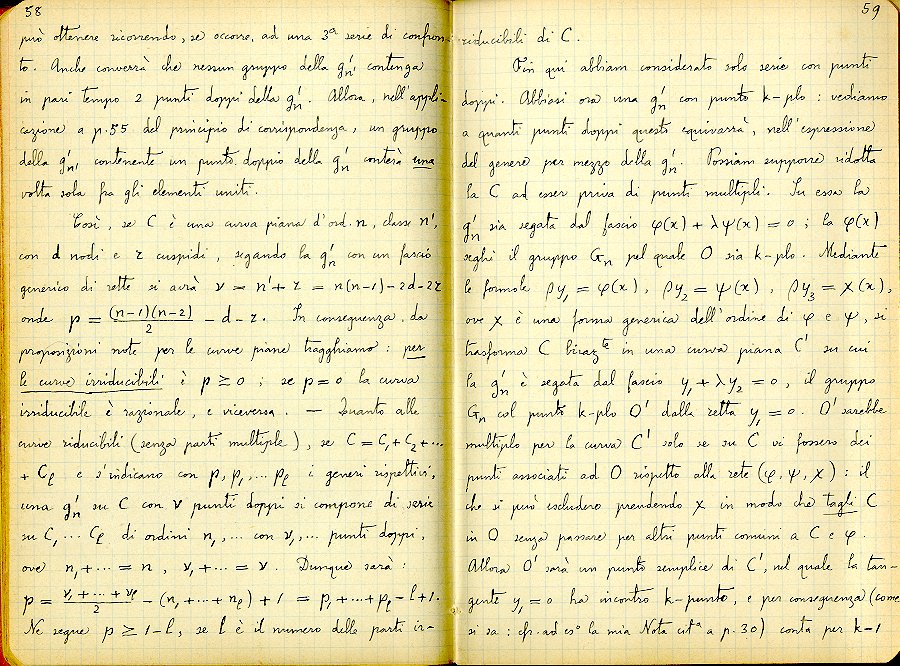 58
può ottenere ricorrendo, se occorre, ad una 3ª serie di confron-
to. Anche converrà che nessun gruppo della g'ₙ' contenga
in pari tempo 2 punti doppi della g'ₙ. Allora, nell'appli-
cazione a p.55 del principio di corrispondenza, un gruppo
della g'ₙ' contenente un punto doppio della g'ₙ conterà una
volta sola fra gli elementi uniti.
Così, se C è una curva piana d'ord. n, classe n',
con d nodi e r cuspidi, segando la g'ₙ con un fascio
generico di rette si avrà ν = n'+r = n(n-1)-2d-2r
onde p = (n-1)(n-2)/2 - d - r. In conseguenza, da
proposizioni note per le curve piane tragghiamo: per
le curve irriducibili è p ≥ 0; se p=0 la curva
irriducibile è razionale, e viceversa. — Quanto alle
curve riducibili (senza parti multiple), se C = C₁+C₂+...
+ Cℓ e s'indicano con p, p₁, ... pℓ i generi rispettivi,
una g'ₙ su C con ν punti doppi si compone di serie
su C₁ ... Cℓ di ordini n₁, ... con ν₁, ... punti doppi,
ove n₁+... = n, ν₁+... = ν. Dunque sarà:
p = (ν₁+...+νℓ)/2 - (n₁+...+nℓ)+1 = p₁+...+pℓ-ℓ+1.
Ne segue p ≥ 1-ℓ, se ℓ è il numero delle parti ir-
59
riducibili di C.
Fin qui abbiam considerato solo serie con punti
doppi. Abbiasi ora una g'ₙ con punto k-plo: vediamo
a quanti punti doppi questo equivarrà, nell'espressione
del genere per mezzo della g'ₙ. Possiam supporre ridotta
la C ad esser priva di punti multipli. Su essa la
g'ₙ sia segata dal fascio φ(x)+λψ(x)=0; la φ(x)
seghi il gruppo Gₙ pel quale O sia k-plo. Mediante
le formole ρy₁=φ(x), ρy₂=ψ(x), ρy₃=χ(x),
ove χ è una forma generica dell'ordine di φ e ψ, si
trasforma C birazᵗᵉ in una curva piana C' su cui
la g'ₙ è segata dal fascio y₁+λy₂=0, il gruppo
Gₙ col punto k-plo O' dalla retta y₁=0. O' sarebbe
multiplo per la curva C' solo se su C vi fossero dei
punti associati ad O rispetto alla rete (φ, ψ, χ): il
che si può escludere prendendo χ in modo che tagli C
in O senza passare per altri punti comuni a C e φ.
Allora O' sarà un punto semplice di C', nel quale la tan-
gente y₁=0 ha incontro k-punto, e per conseguenza (come
si sa: cfr. ad esº la mia Nota citª a p.30) conta per k-1